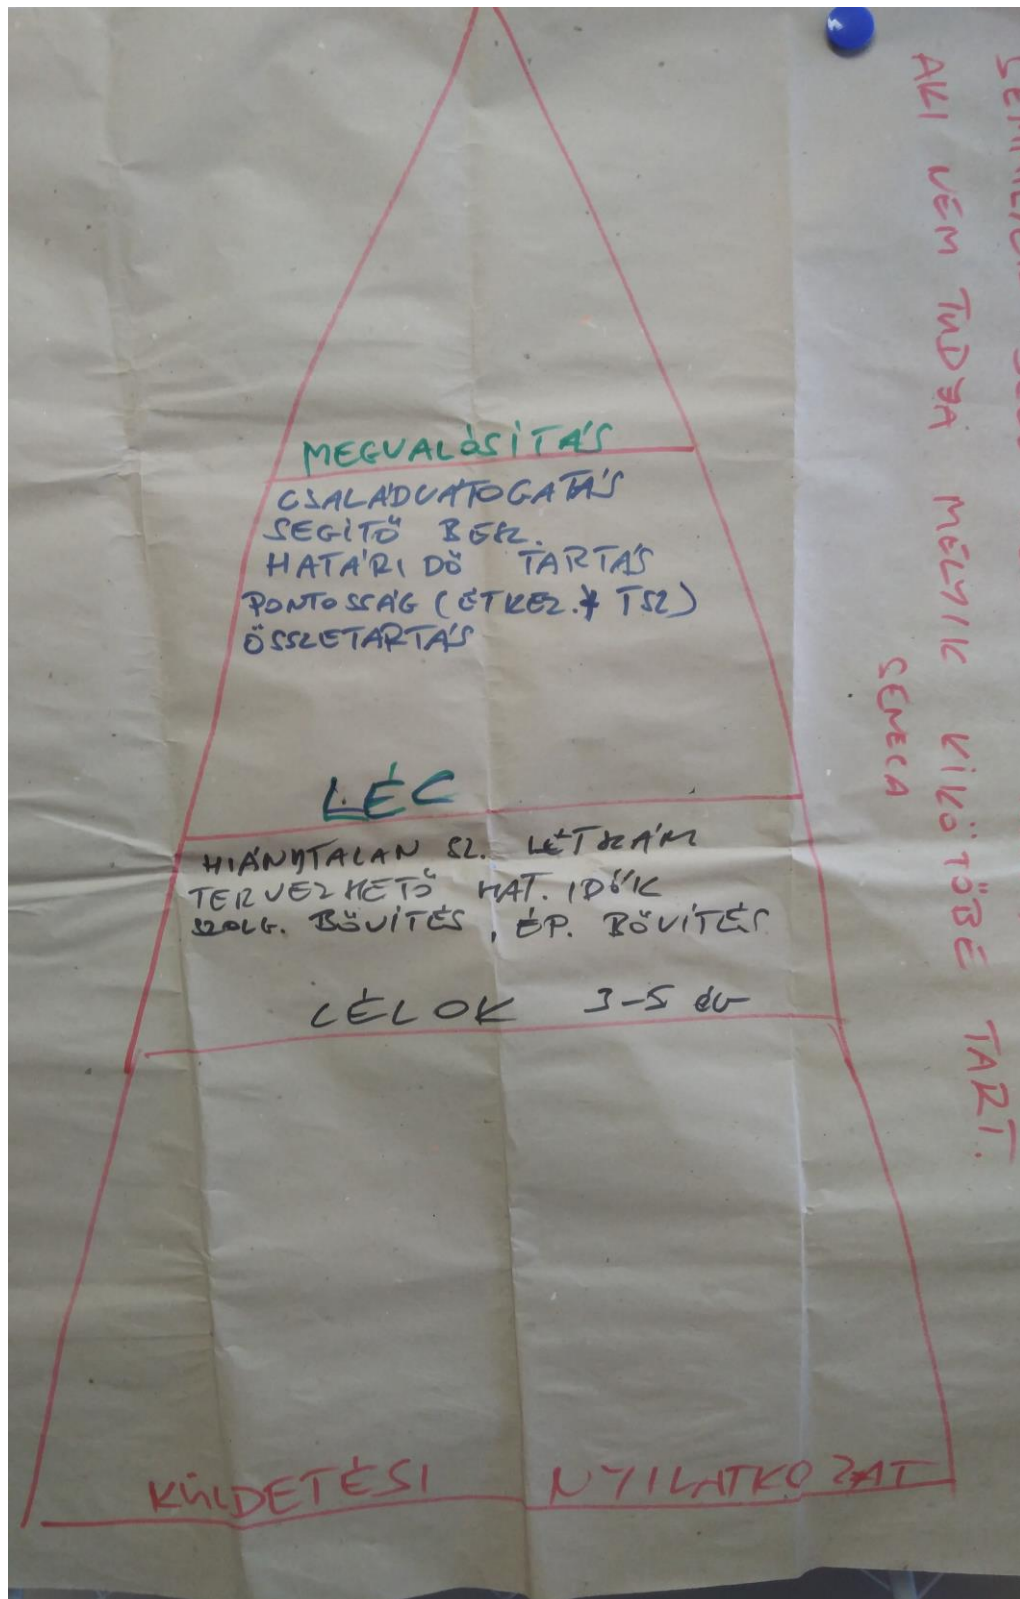 MEGVALÓSÍTÁS
CSALÁDLÁTOGATÁS
SEGÍTŐ BESZ.
HATÁRIDŐ TARTÁS
PONTOSSÁG (ÉTKEZ. TSZ)
ÖSSZETARTÁS
LÉC
HIÁNYTALAN SZ. LÉTSZÁM
TERVEZHETŐ HAT. IDŐK
SZOLG. BŐVÍTÉS, ÉP. BŐVÍTÉS
CÉLOK 3-5 év
KÜLDETÉSI NYILATKOZAT
AKI NEM TUDJA MELYIK KIKÖTŐBE TART.
SENECA